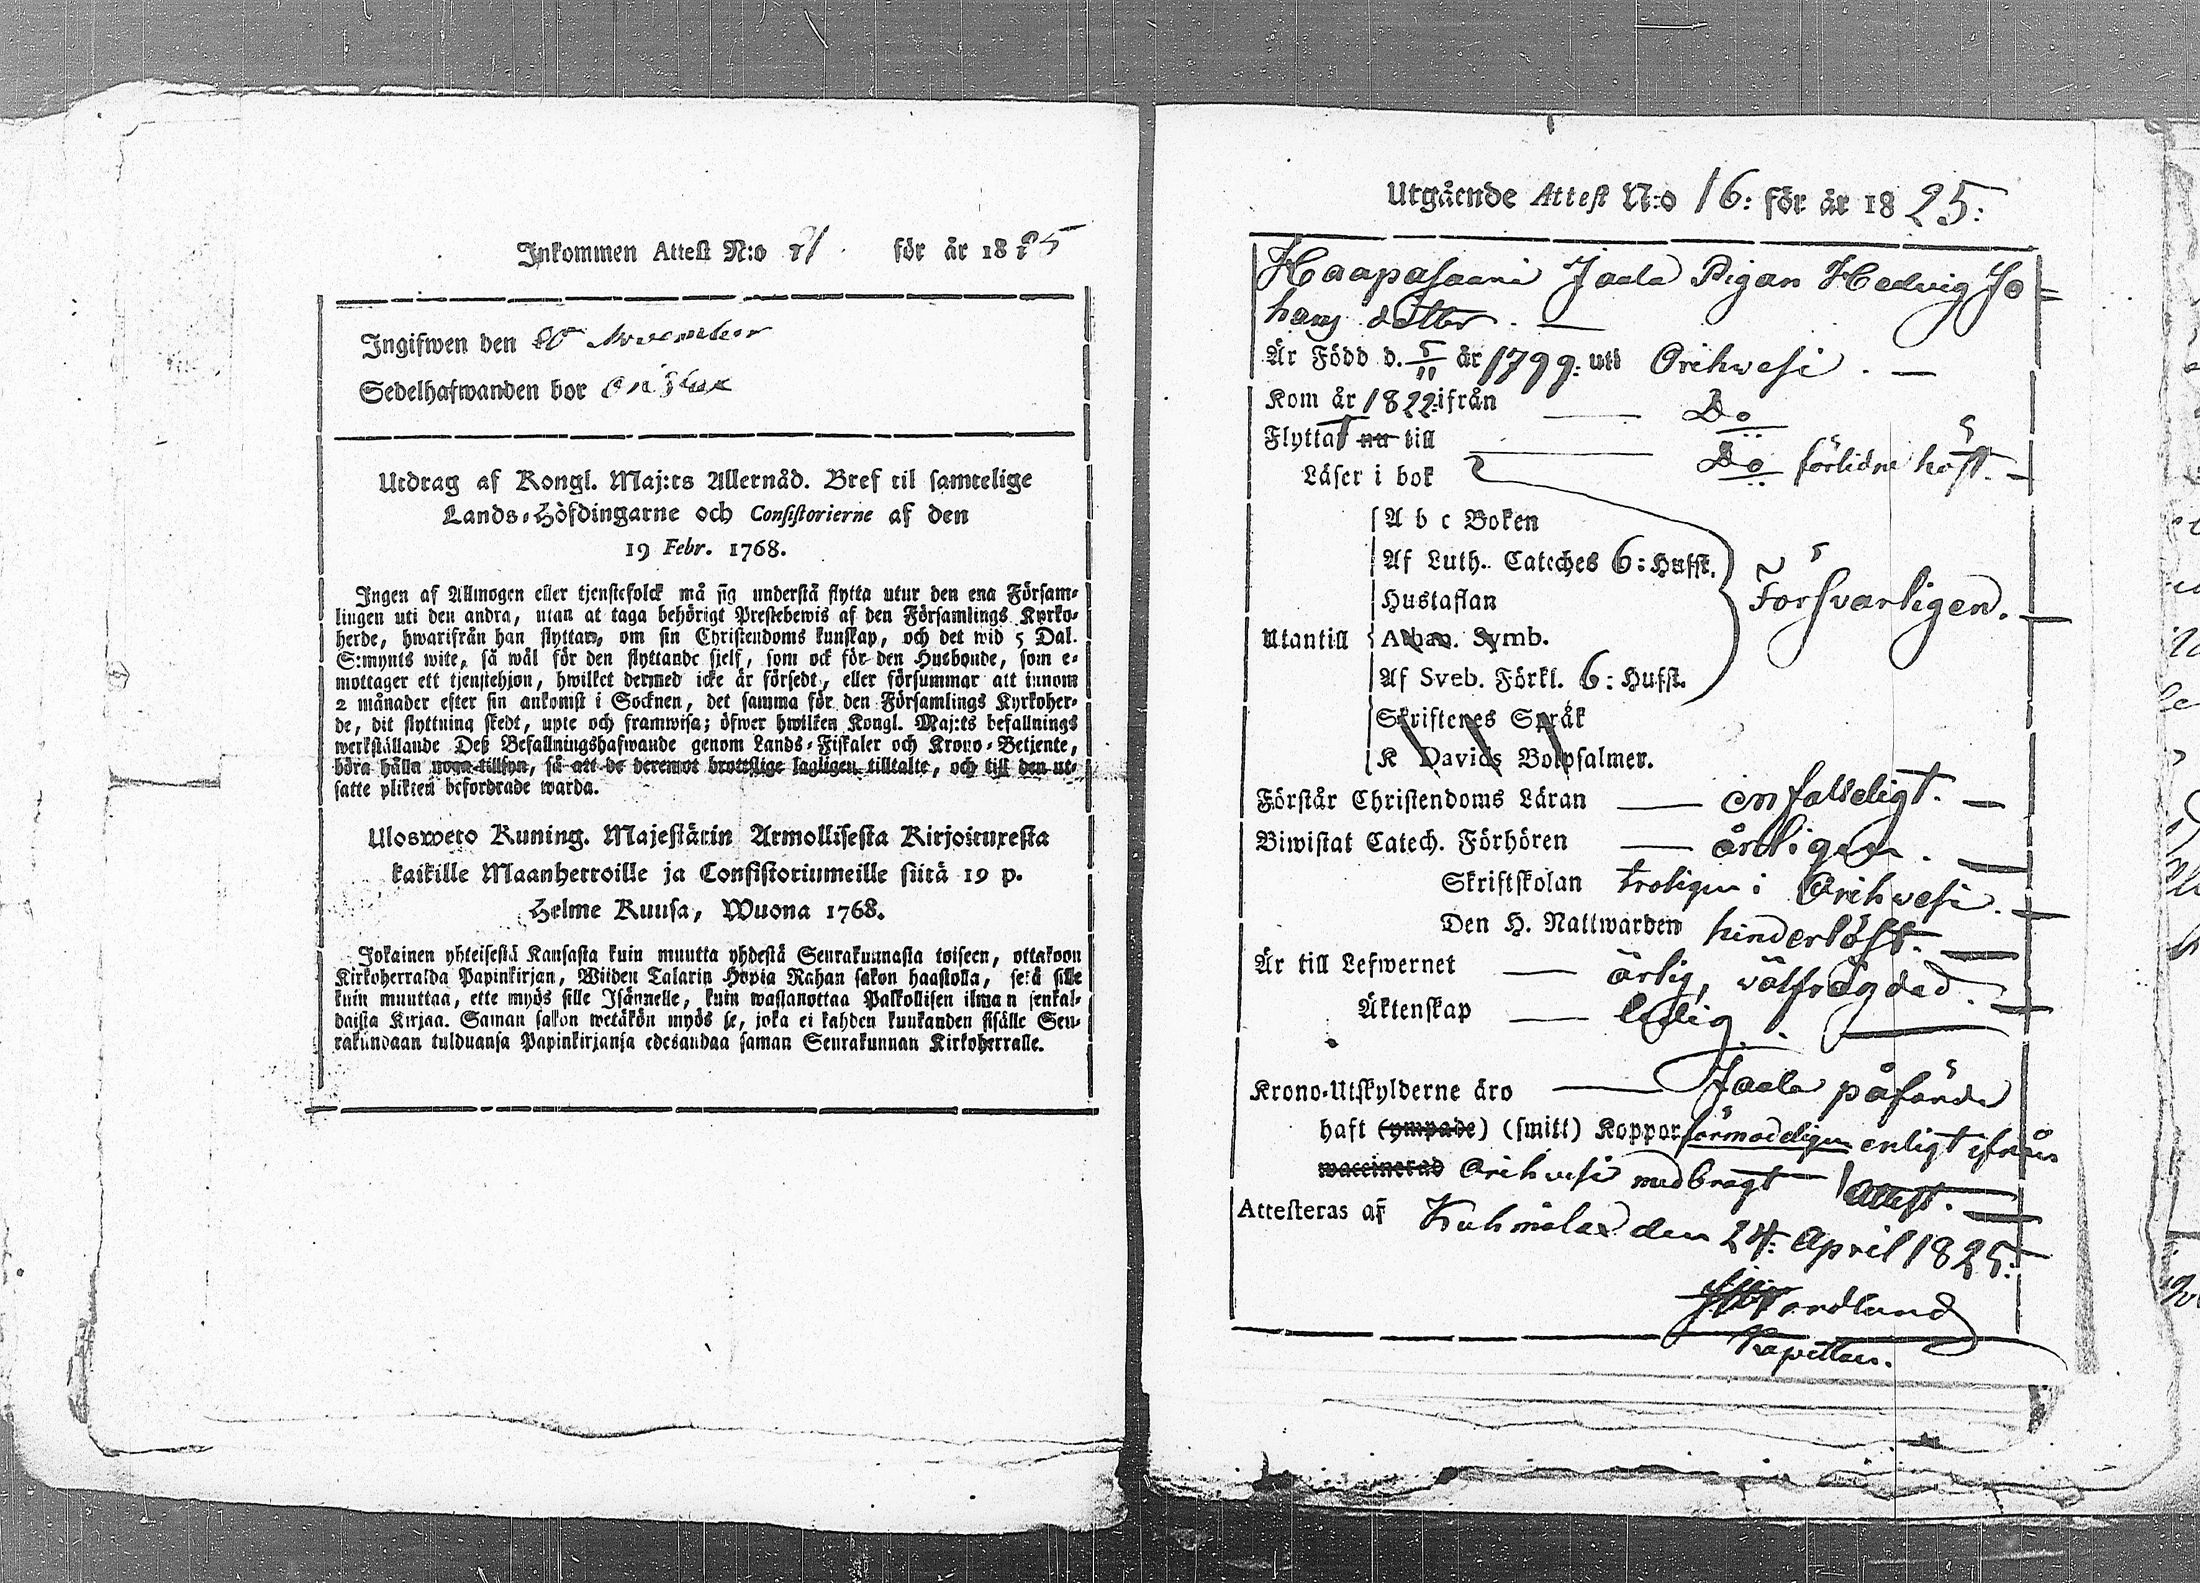 Inkommen Attest N:o 21. för år 1825
Ingifwen den 20 November
Sedelhafwanden bor
Utdrag af Kongl. Maj:ts Allernåd. Bref til samtelige
Lands-Höfdingarne och Consistorierne af den
19 Febr. 1768.
Ingen af Allmogen eller tjenstefolck må sig understå flytta utur den ena Försam-
lingen uti den andra, utan at taga behörigt Prestebewis af den Församlings Kyrko-
herde, hwarifrån han flyttar, om sin Christendoms kunskap, och det wid 5 Dal.
S:mynts wite, så wäl för den flyttande sjelf, som ock för den Husbonde, som e-
mottager ett tjenstehjon, hwilket dermed icke är försedt, eller försummar att innom
2 månader efter sin ankomst i Socknen, det samma för den Församlings Kyrkoher-
de, dit flyttning skedt, upte och framwisa; öfwer hwilken Kongl. Maj:ts befallnings
werkställande Deß Befallningshafwande genom Lands-Fiskaler och Krono-Betjente,
böra hålla noga tillsyn, så att de deremot brottslige lagligen tilltalte, och till den ut-
satte plikten befordrade warda.
Ulosweto Kuning. Majestätin Armollisesta Kirjoituxesta
kaikille Maanherroille ja Consistoriumeille siitä 19 p.
Helme Kuusa, Wuona 1768.
Jokainen yhteisestä Kansasta kuin muutta yhdestä Seurakunnasta toiseen, ottakoon
Kirkoherralda Papinkirjan, Wiiden Talarin Hopia Rahan sakon haastolla, sekä sille
kuin muuttaa, ette myös sille Isännelle, kuin wastanottaa Palkollisen ilman senkal-
daista Kirjaa. Saman sakon wetäkön myös se, joka ei kahden kuukauden sisälle Seu-
rakundaan tulduansa Papinkirjansa edesandaa saman Seurakunnan Kirkoherralle.
Utgående Attest N:o 16: för år 1825:
Haapasaari Jaala Pigan Hedvig Jo=
hans dotter. —
Är Född d. 5/11 år 1799: uti Orihwesi. —
Kom år 1822: ifrån — Do
Flyttat nu till — Do förlidne höst. —
Läser i bok
A b c Boken
Af Luth. Cateches 6: Hufst.
Hustaflan
Försvarligen. —
Utantill Athan. Symb.
Af Sveb. Förkl. 6: Hufst.
Skriftenes Språk
K Davids Botpsalmer.
Förstår Christendoms Läran — enfalldeligt. —
Biwistat Catech. Förhören — årligen. —
Skriftskolan troligen i Orihvesi. —
Den H. Nattwarden hinderlöst. —
Är till Lefwernet — ärlig, välfrägdad. —
Äktenskap — ledig. —
Krono-Utskylderne äro — Jaala påförde
haft (ympade) (smitt) Koppor förmodeligen enligt ifrån
waccinerad Orihvesi medbragt Attest. —
Attesteras af Kuhmalax den 24: April 1825:
Nordlund
Kapellan.